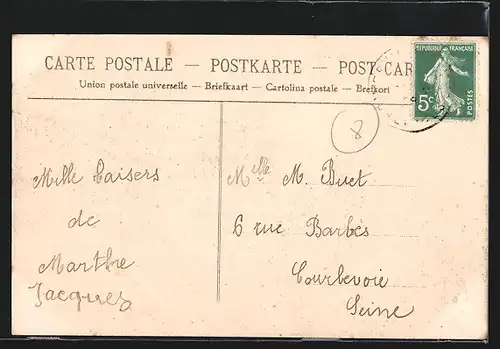 CARTE POSTALE — POSTKARTE — POST CAR
Union postale universelle — Briefkaart — Cartolina postale — Brefkort
REPUBLIQUE FRANÇAISE
5c
POSTES
8
Mille baisers
de
Marthe
Jacques
Melle M. Buet
6 rue Barbés
Courbevoie
Seine